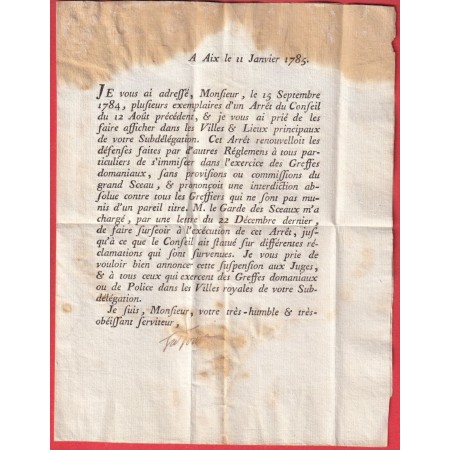 A Aix le 11 Janvier 1785.
JE vous ai adressé, Monsieur, le 15 Septembre
1784, plusieurs exemplaires d'un Arrêt du Conseil
du 12 Août précédent, & je vous ai prié de les
faire afficher dans les Villes & Lieux principaux
de votre Subdélégation. Cet Arrêt renouvelloit les
défenses faites par d'autres Réglemens à tous par-
ticuliers de s'immiscer dans l'exercice des Greffes
domaniaux, sans provisions ou commissions du
grand Sceau, & prononçoit une interdiction ab-
solue contre tous les Greffiers qui ne sont pas mu-
nis d'un pareil titre. M. le Garde des Sceaux m'a
chargé, par une lettre du 22 Décembre dernier,
de faire surseoir à l'exécution de cet Arrêt, jus-
qu'à ce que le Conseil ait statué sur différentes ré-
clamations qui sont survenues. Je vous prie de
vouloir bien annoncer cette suspension aux Juges,
& à tous ceux qui exercent des Greffes domaniaux
ou de Police dans les Villes royales de votre Sub-
délégation.
Je suis, Monsieur, votre très-humble & très-
obéissant serviteur,